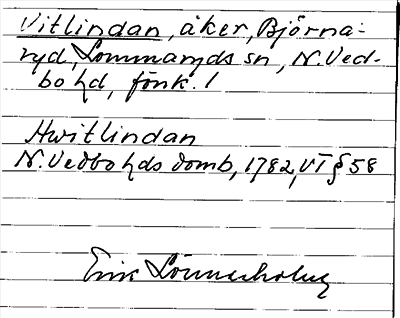 Vitlindan, åker, Björna-
ryd, Lommaryds sn, N. Ved-
bo hd, fönk. !
Hwitlindan
N. Vedbo hds domb, 1782, VT § 58
Erik Lönnerholm